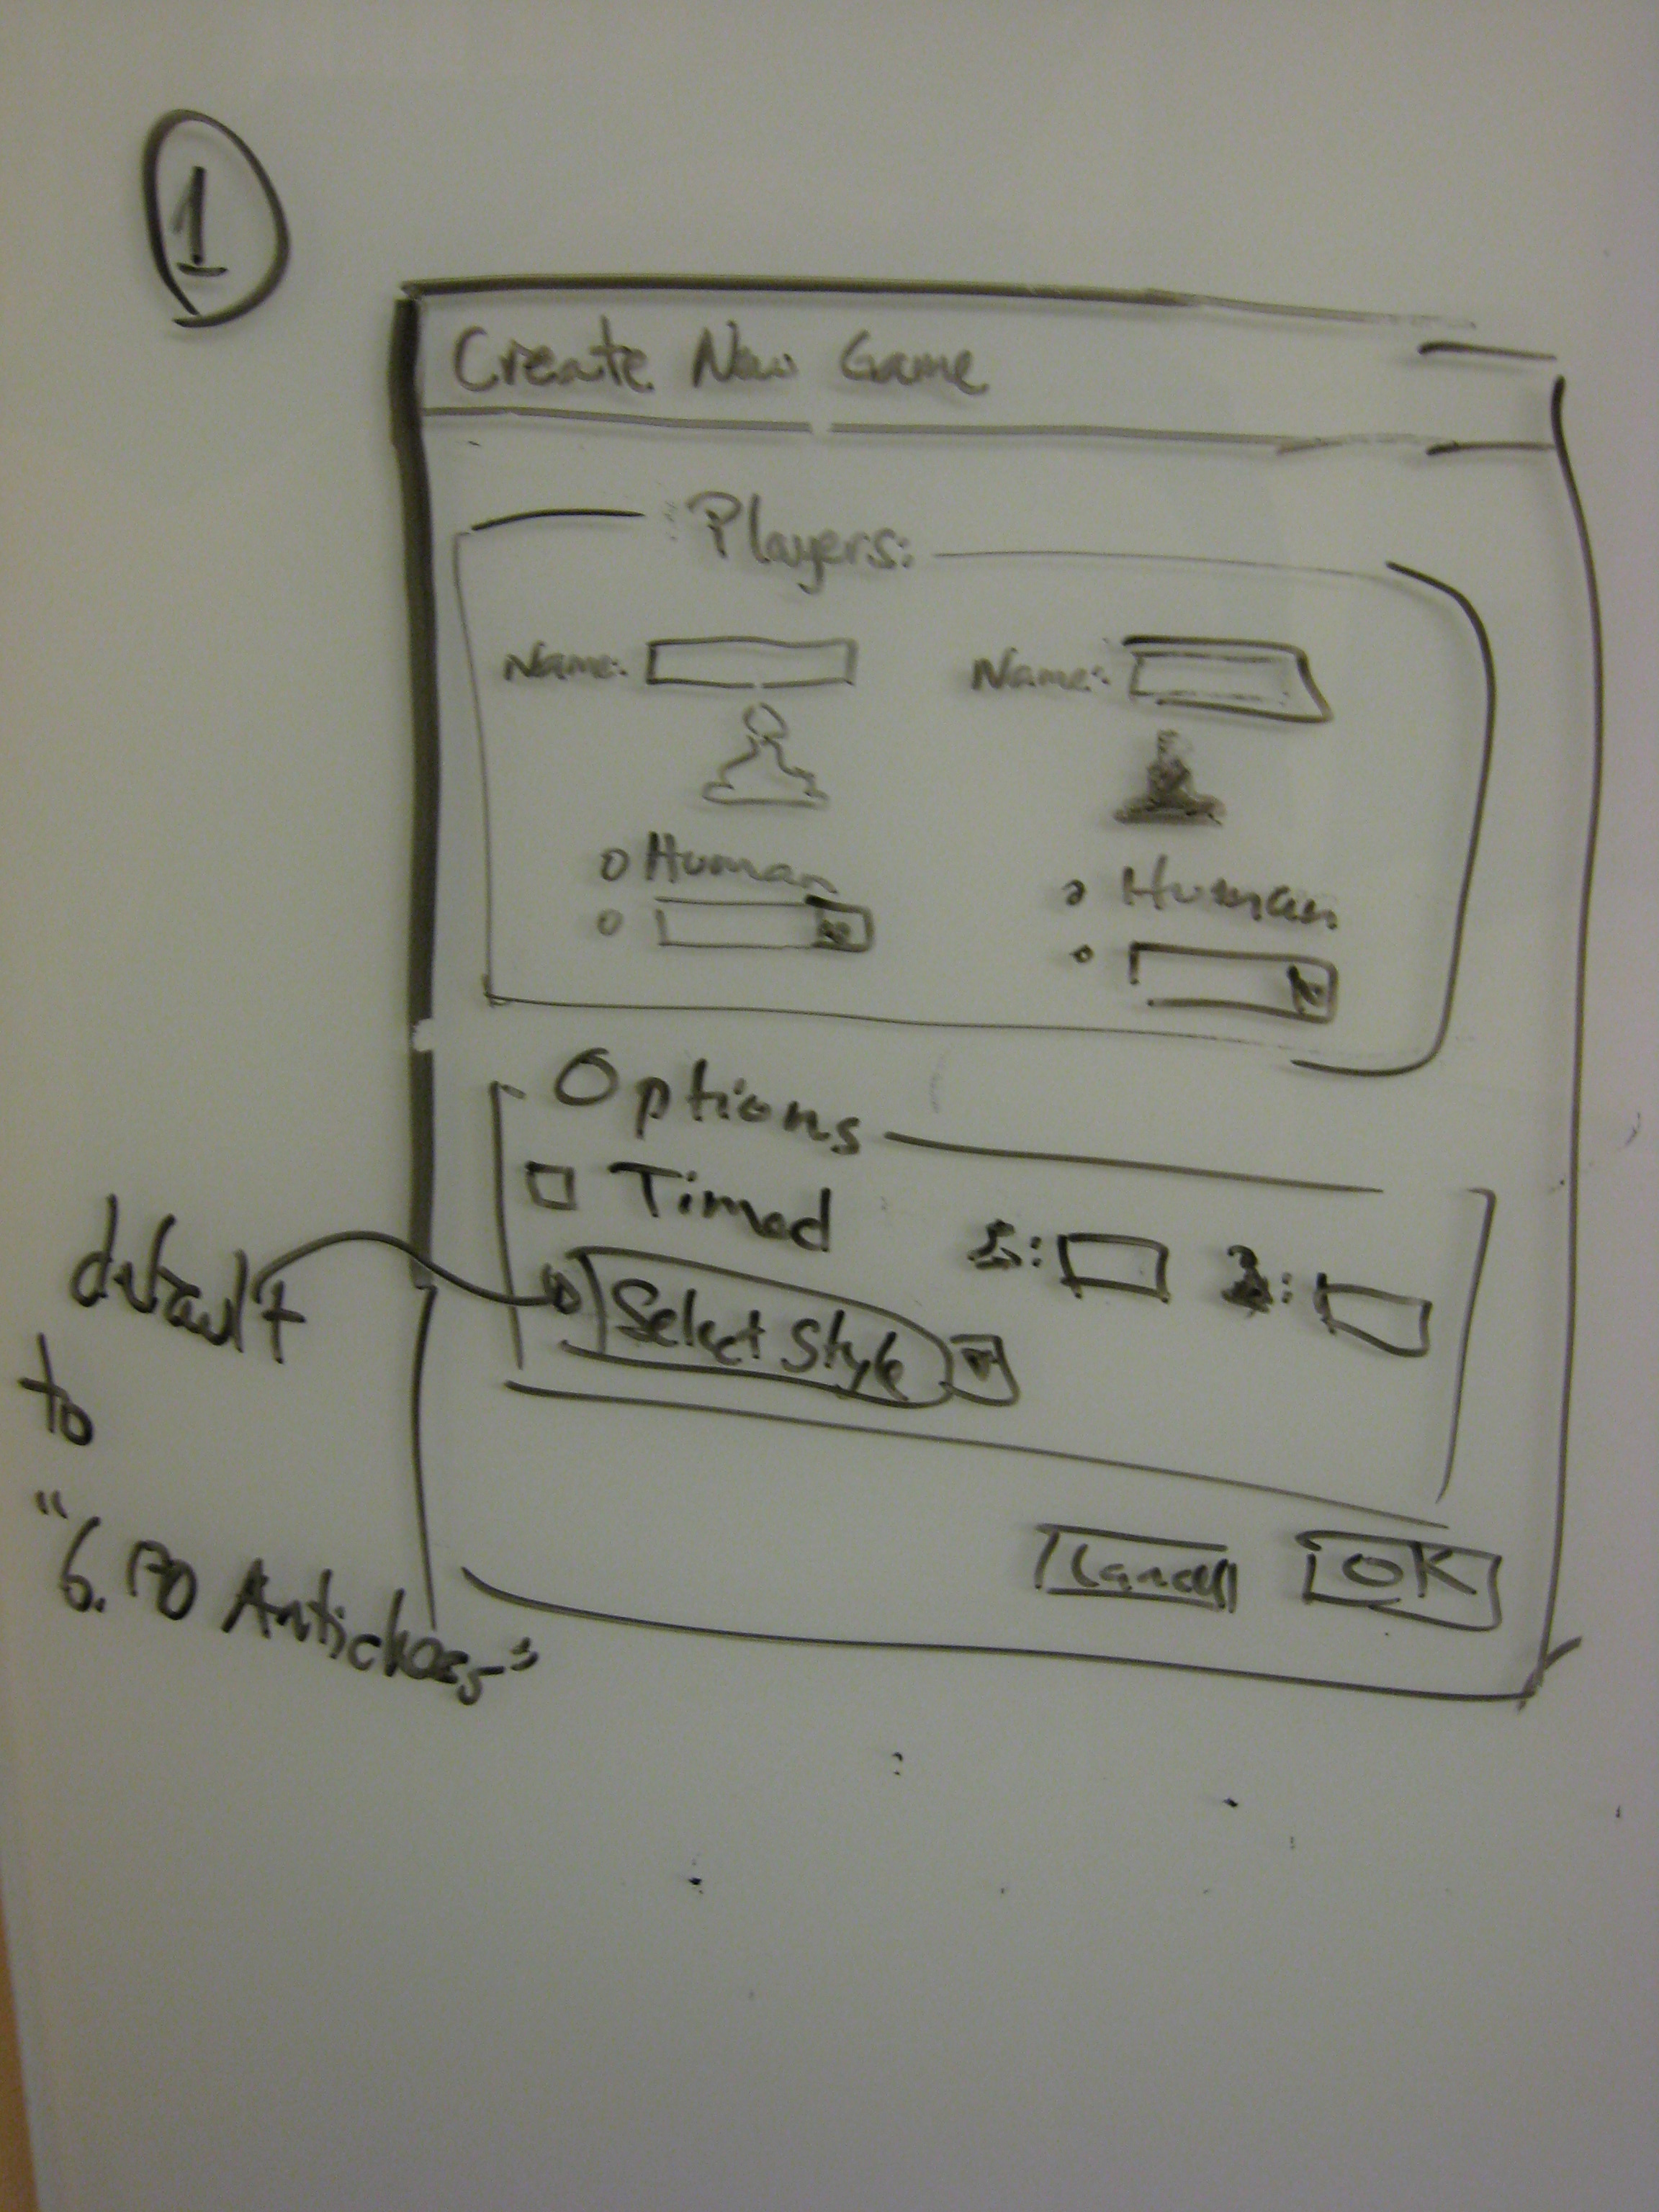 1
Create New Game
Players:
Name: Name:
Human Human
Options
Timed
: :
Select Style
default
to
"6.170 Antichess"
Cancel OK